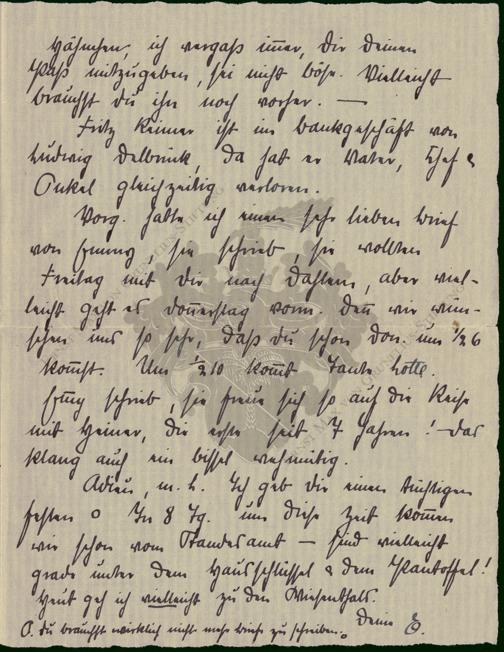 Hähnchen, ich vergaß immer, Dir deinen
Paß mitzugeben, sei nicht böse. Vielleicht
brauchst du ihn noch vorher. —
Fritz Reimer ist im Bankgeschäft von
Ludwig Delbrück, da hat er Vater, Chef &
Onkel gleichzeitig verloren.
Vorg. hatte ich einen sehr lieben Brief
von Emmy, sie schrieb, sie wollten
Freitag mit Dir nach Dahlem, aber viel-
leicht geht es Donnerstag vorm. Denn wir wün-
schen uns so sehr, daß du schon Don. um ½6
kommst. Um ½10 kommt Tante Lotte.
Emmy schrieb, sie freue sich so auf die Reise
mit Heiner, die erste seit 7 Jahren! – das
klang auch ein bissel wehmütig.
Adieu, m. H. Ich geb dir einen tüchtigen
festen o In 8 Tg. um diese Zeit kommen
wir schon vom Standesamt – sind vielleicht
grade unter dem Hausschlüssel & dem Pantoffel!
Heut geh ich vielleicht zu den Wiesenthals.
Deine E.
O. du brauchst wirklich nicht mehr Briefe zu schreiben.